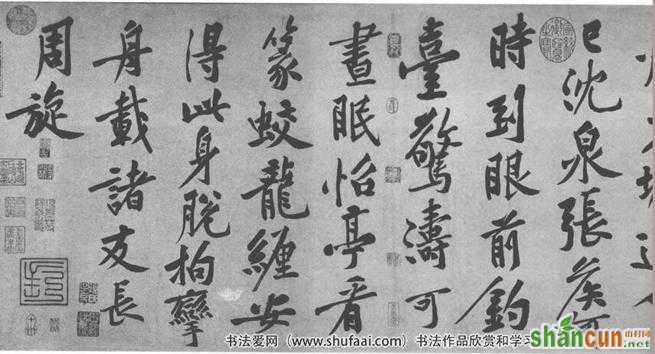 已沈泉張侯何
時到眼前釣
臺驚濤可
晝眠怡亭看
篆蛟龍纏安
得此身脫拘攣
舟載諸友長
周旋
书法爱网（www.shufaai.com）书法作品欣赏和学习
shancun
.net